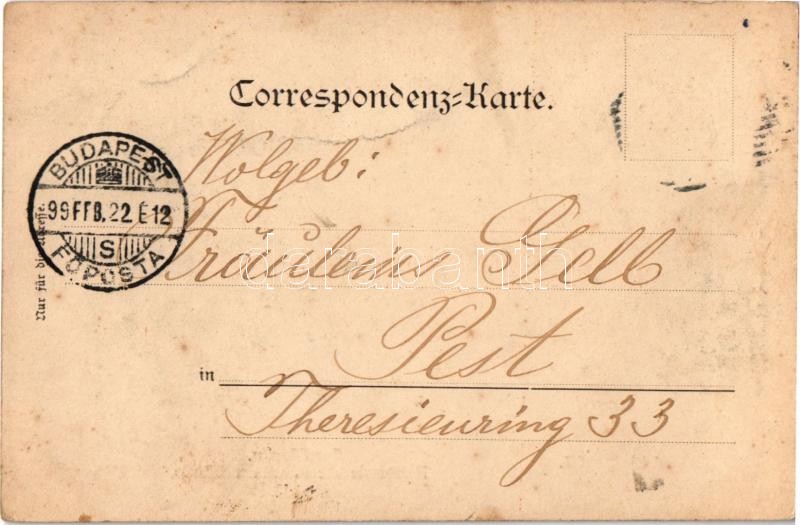 Correspondenz-Karte.
Wolgeb:
Fräuleins Gelb
in Pest
Theresienring 33
BUDAPEST
99 FEB. 22 É 12
S
FŐPOSTA
Nur für die Adresse.
darabanth